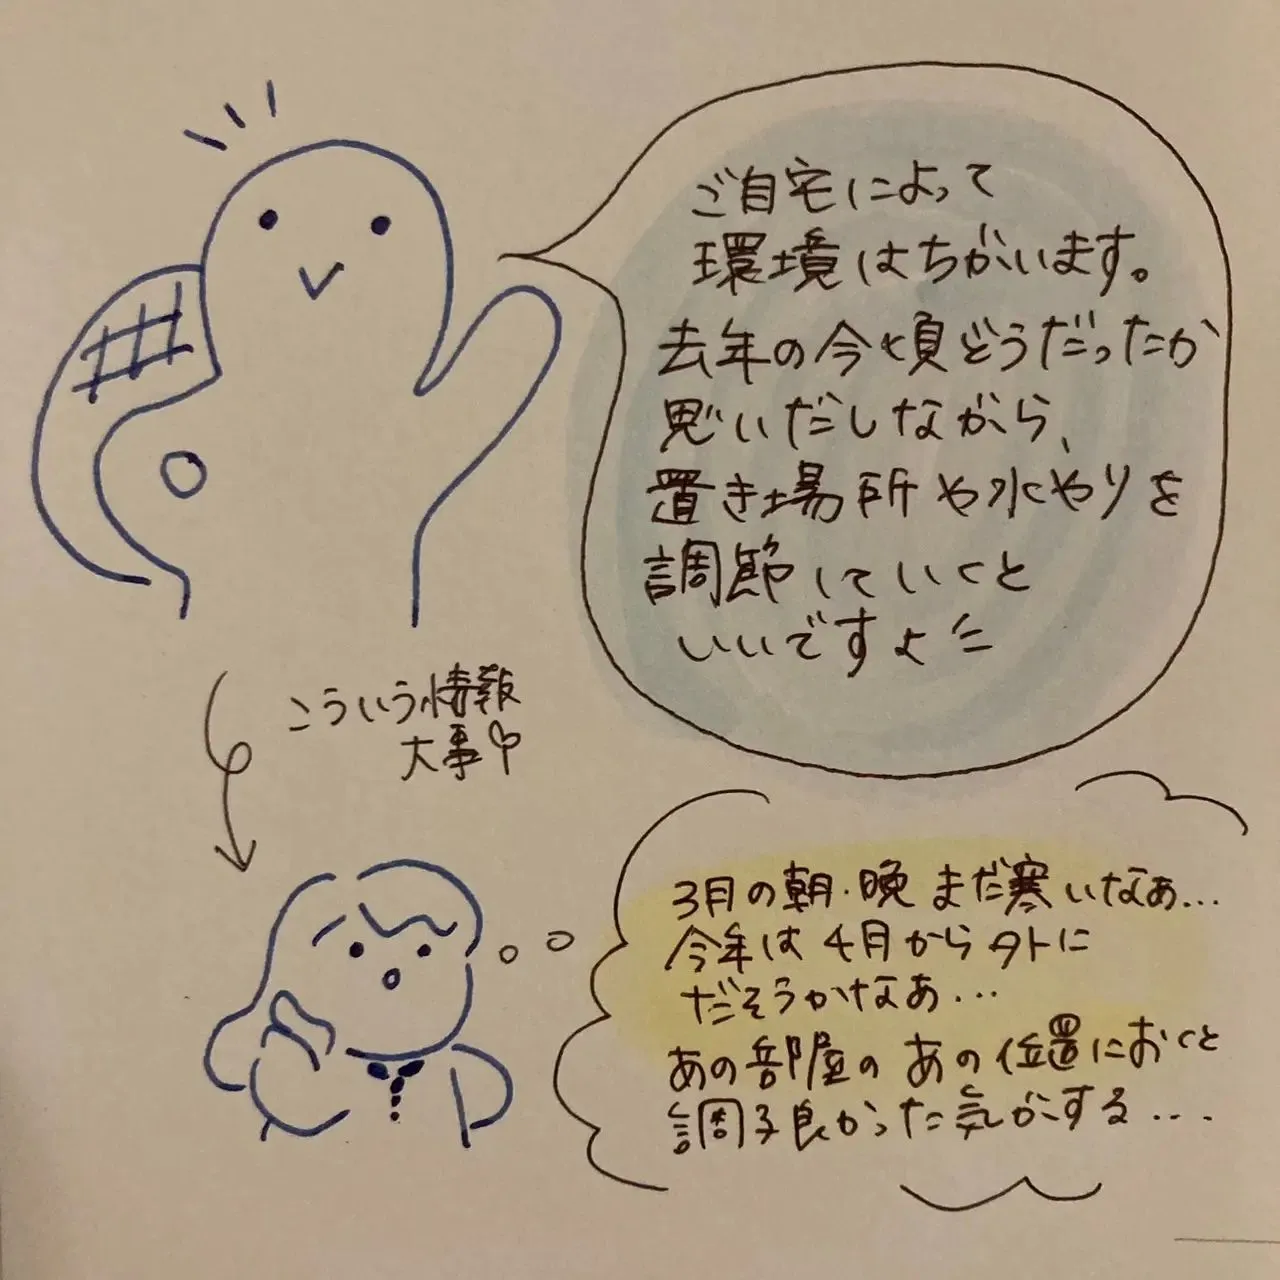 ご自宅によって
環境はちがいます。
去年の今頃どうだったか
思いだしながら、
置き場所や水やりを
調節していくと
いいですよ
こういう情報
大事
3月の朝・晩まだ寒いなぁ...
今年は4月から外に
だそうかなぁ...
あの部屋のあの位置におくと
調子良かった気がする....